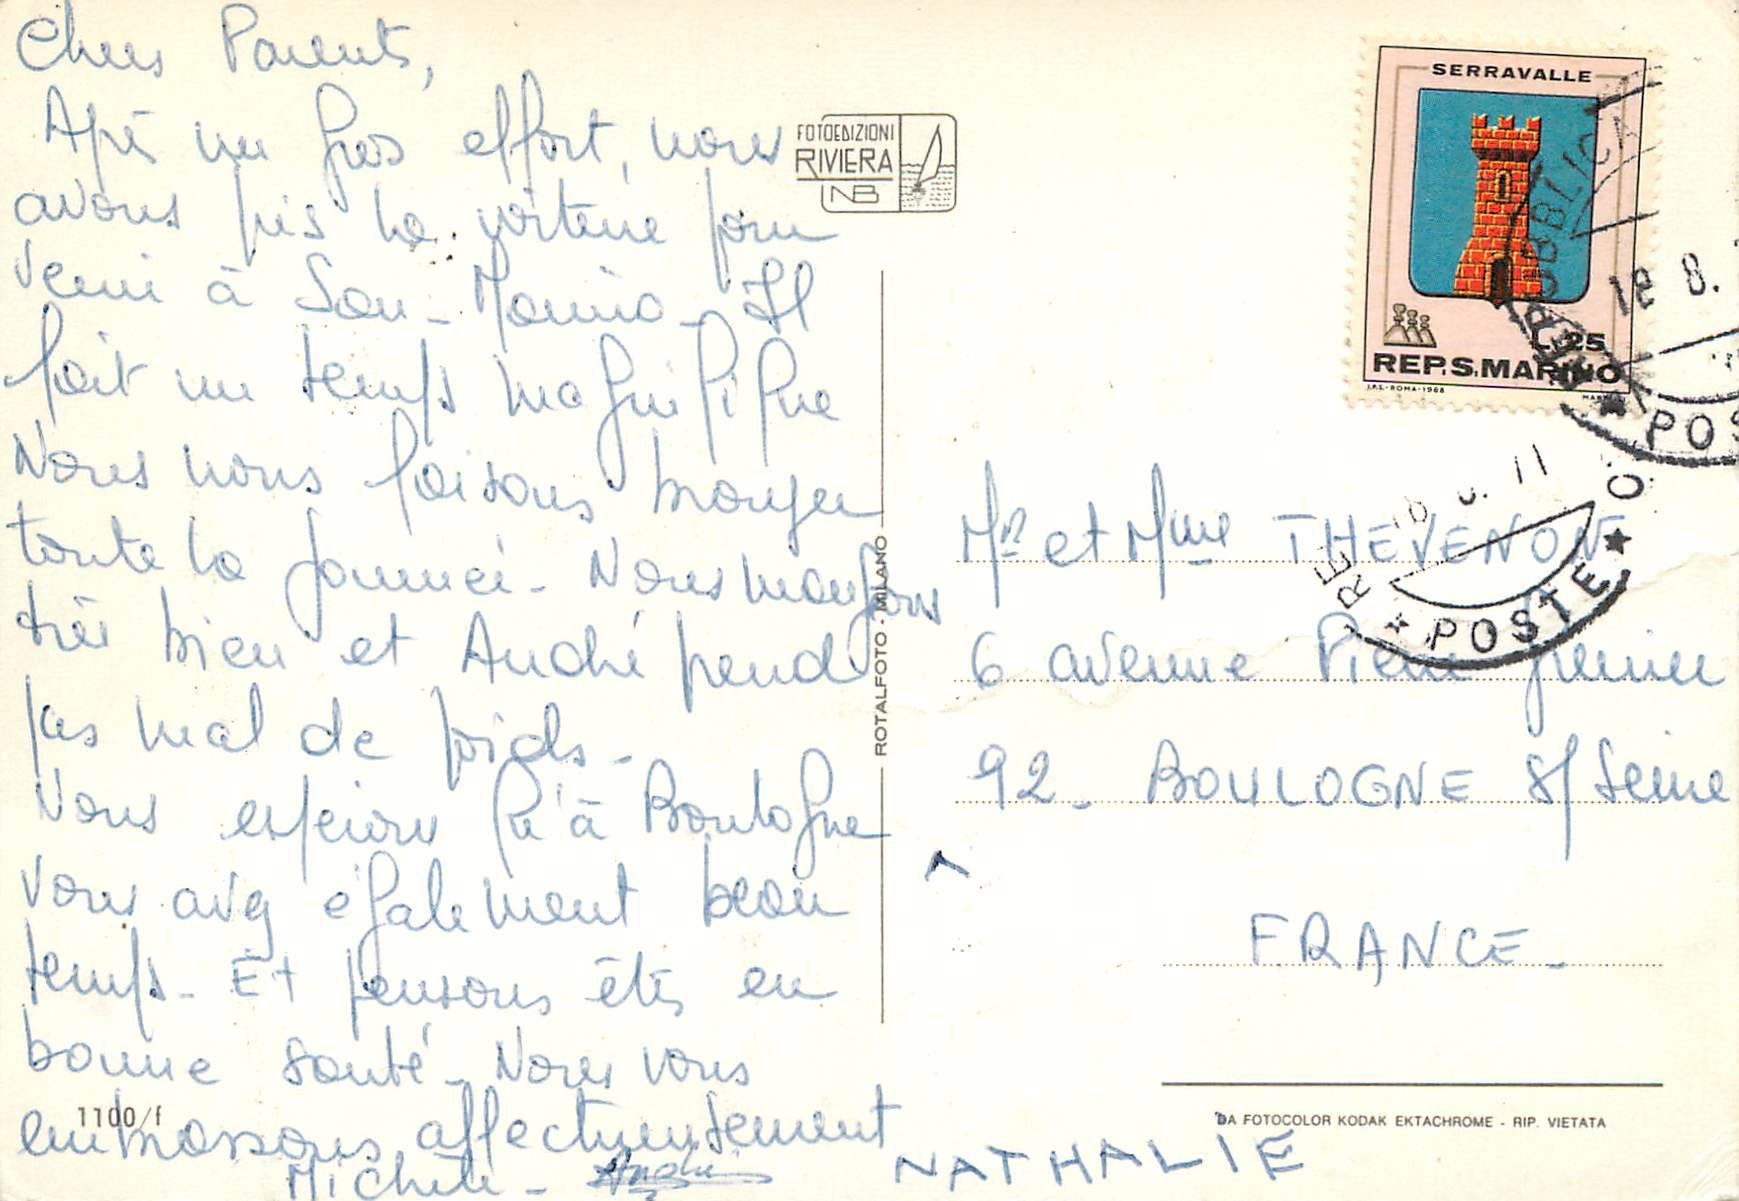 Chers Parents,
Après un gros effort, nous
avons pris la voiture pour
venir à San-Marino. Il
fait un temps magnifique
Nous nous faisons bronzer
toute la journée - Nous mangeons
très bien et André prend
pas mal de poids -
Nous espérons qu'à Boulogne
vous avez également beau
temps - Et pensons êtes en
bonne santé - Nous vous
embrassons affectueusement
Michèle - André NATHALIE
1100/f
FOTOEDIZIONI
RIVIERA
NB
ROTALFOTO - MILANO
SERRAVALLE
L. 25
REP. S. MARINO
I.P.S. - ROMA - 1968
REPUBBLICA
18 8.
POS
18 8. 71
RE
POSTE
Mr et Mme THEVENON
6 avenue Pierre Grenier
92 - BOULOGNE S/ Seine
FRANCE -
DA FOTOCOLOR KODAK EKTACHROME - RIP. VIETATA